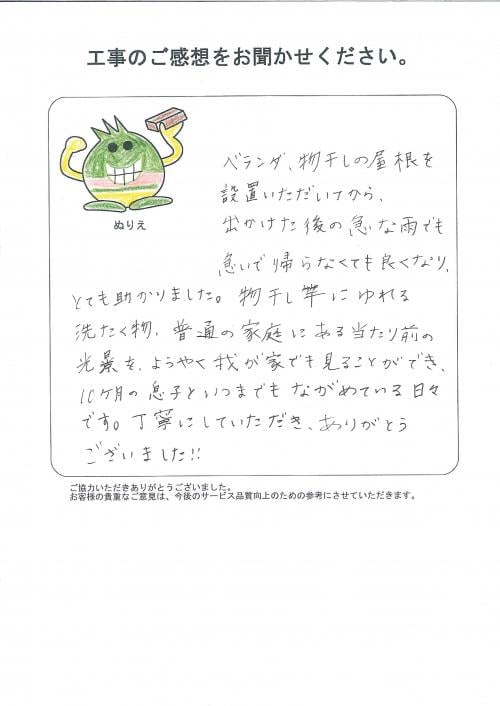 工事のご感想をお聞かせください。
ぬりえ
ベランダ、物干しの屋根を
設置いただいてから、
出かけた後の急な雨でも
急いで帰らなくても良くなり、
とても助かりました。物干し竿にゆれる
洗たく物、普通の家庭にある当たり前の
光景を、ようやく我が家でも見ることができ、
10ヶ月の息子といつまでもながめている日々
です。丁寧にしていただき、ありがとう
ございました!!
ご協力いただきありがとうございました。
お客様の貴重なご意見は、今後のサービス品質向上のための参考にさせていただきます。